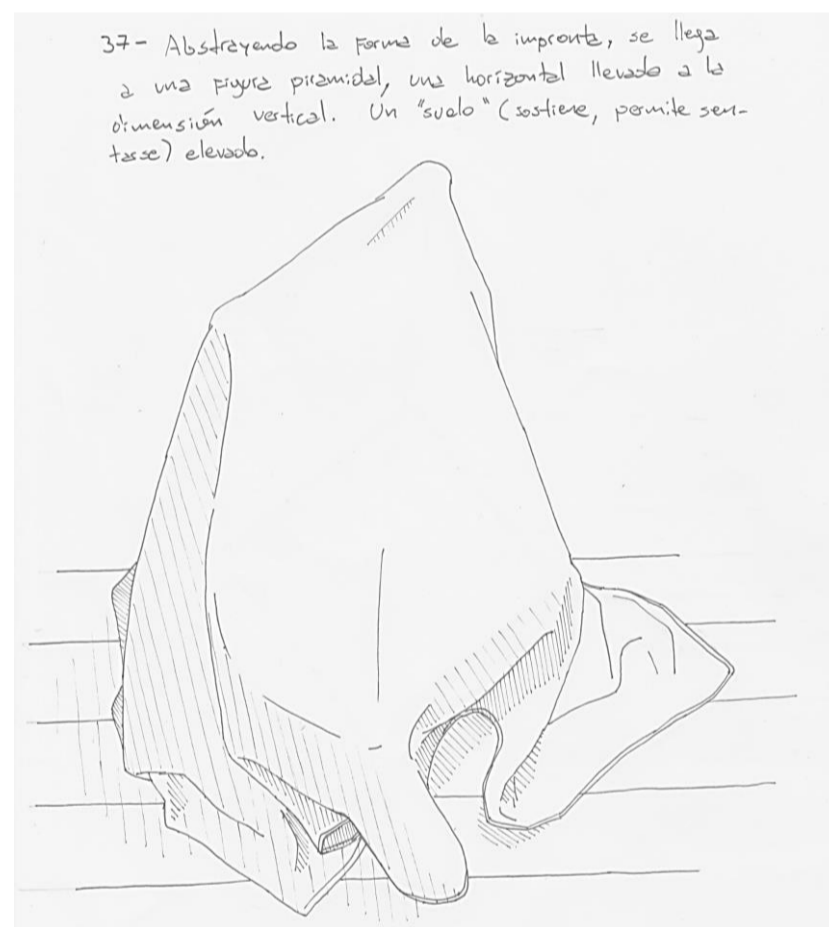 37- Abstrayendo la forma de la impronta, se llega
a una figura piramidal, una horizontal llevado a la
dimensión vertical. Un "suelo" (sostiene, permite sen-
tarse) elevado.